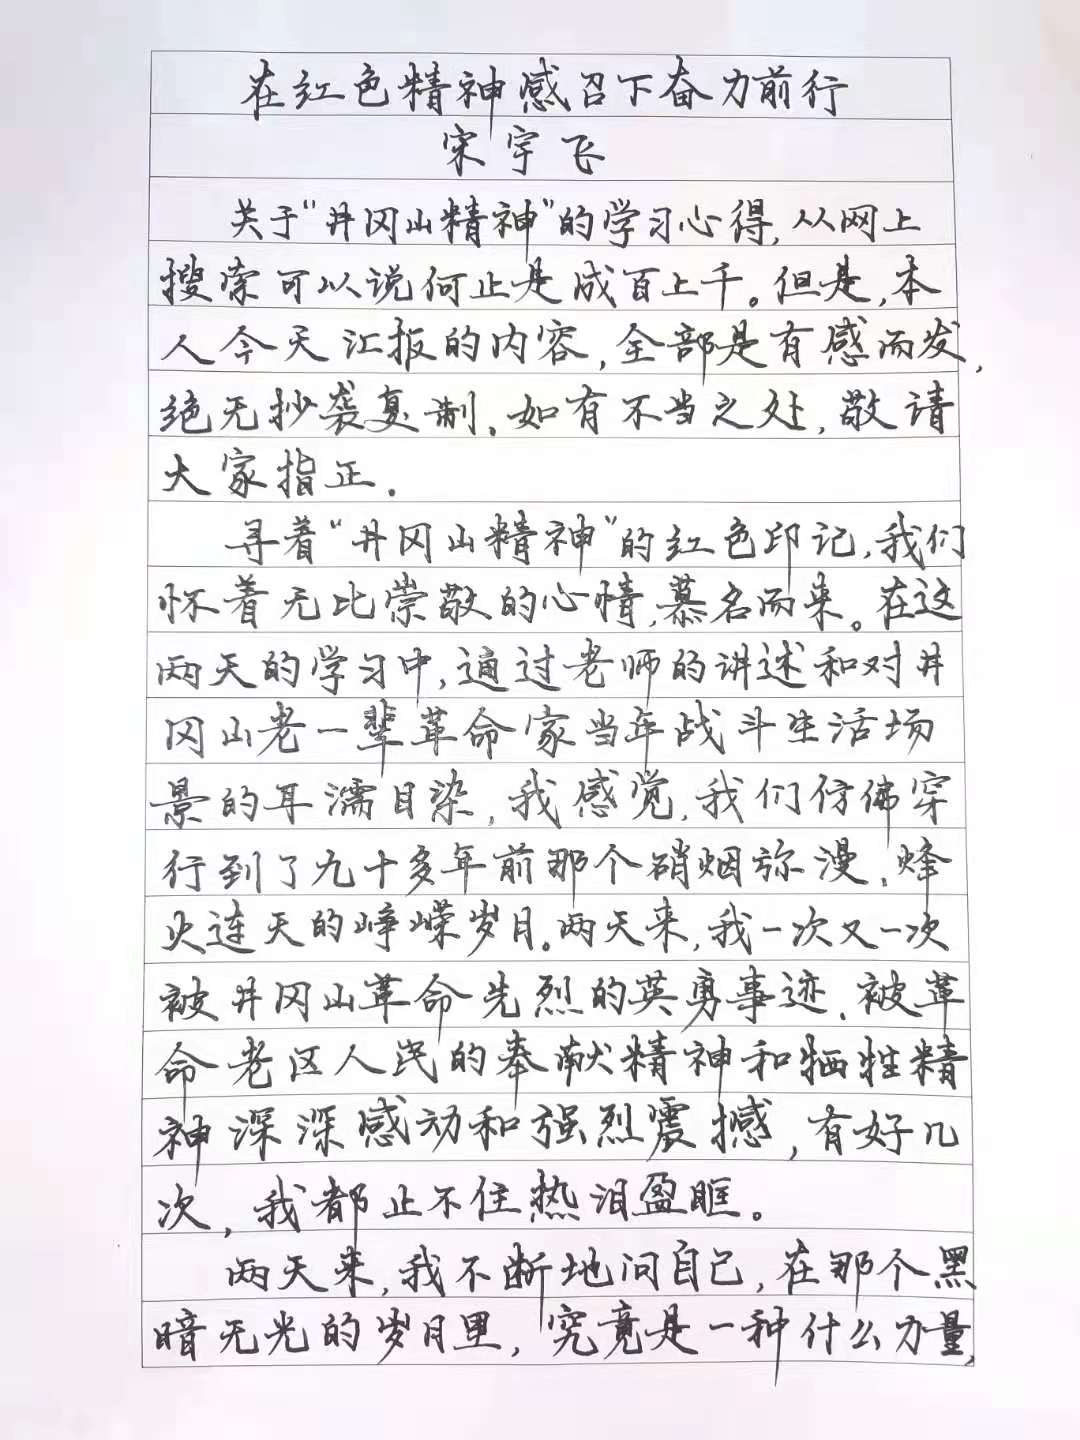 在红色精神感召下奋力前行
宋宇飞
关于“井冈山精神”的学习心得,从网上
搜索可以说何止是成百上千。但是,本
人今天汇报的内容,全部是有感而发,
绝无抄袭复制.如有不当之处,敬请
大家指正.
寻着“井冈山精神”的红色印记,我们
怀着无比崇敬的心情,慕名而来。在这
两天的学习中,通过老师的讲述和对井
冈山老一辈革命家当年战斗生活场
景的耳濡目染,我感觉,我们仿佛穿
行到了九十多年前那个硝烟弥漫、烽
火连天的峥嵘岁月。两天来,我一次又一次
被井冈山革命先烈的英勇事迹、被革
命老区人民的奉献精神和牺牲精
神深深感动和强烈震撼,有好几
次,我都止不住热泪盈眶。
两天来,我不断地问自己,在那个黑
暗无光的岁月里,究竟是一种什么力量,